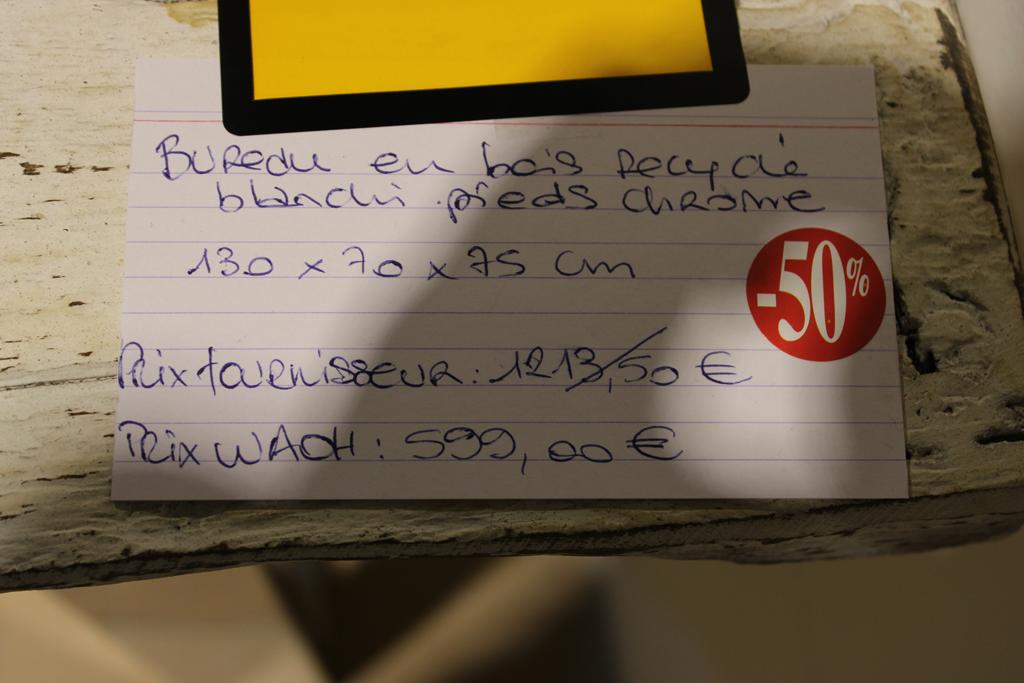 Bureau en bois recyclé
blanchi pieds chrome
130 x 70 x 75 cm
-50%
Prix fournisseur : 1213,50 €
Prix WAOH : 599,00 €